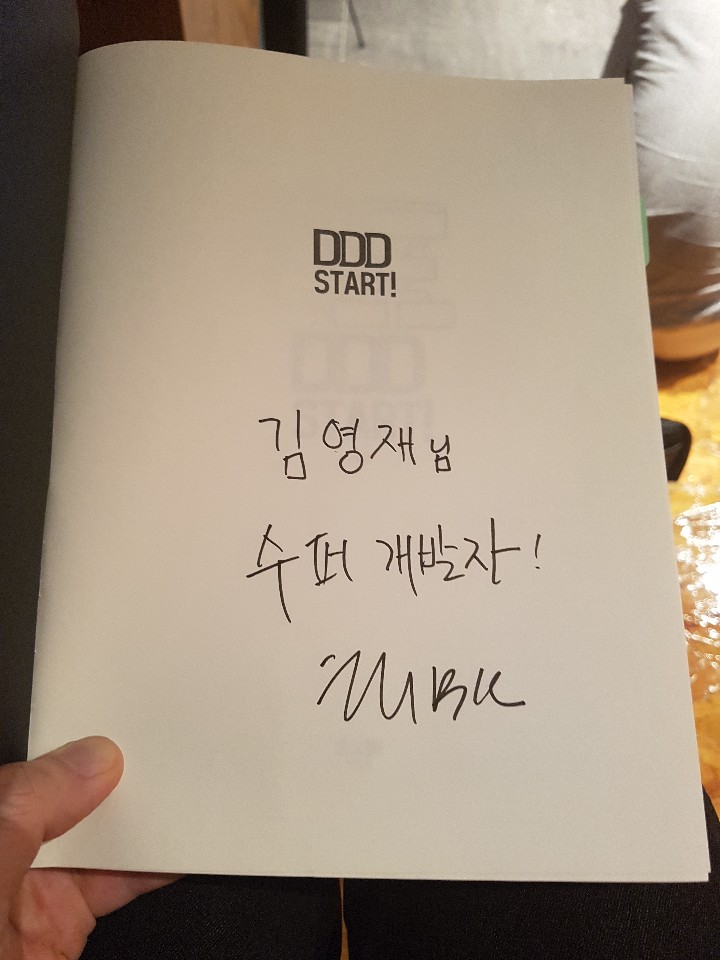 DDD
START!
김영재님
수퍼 개발자!